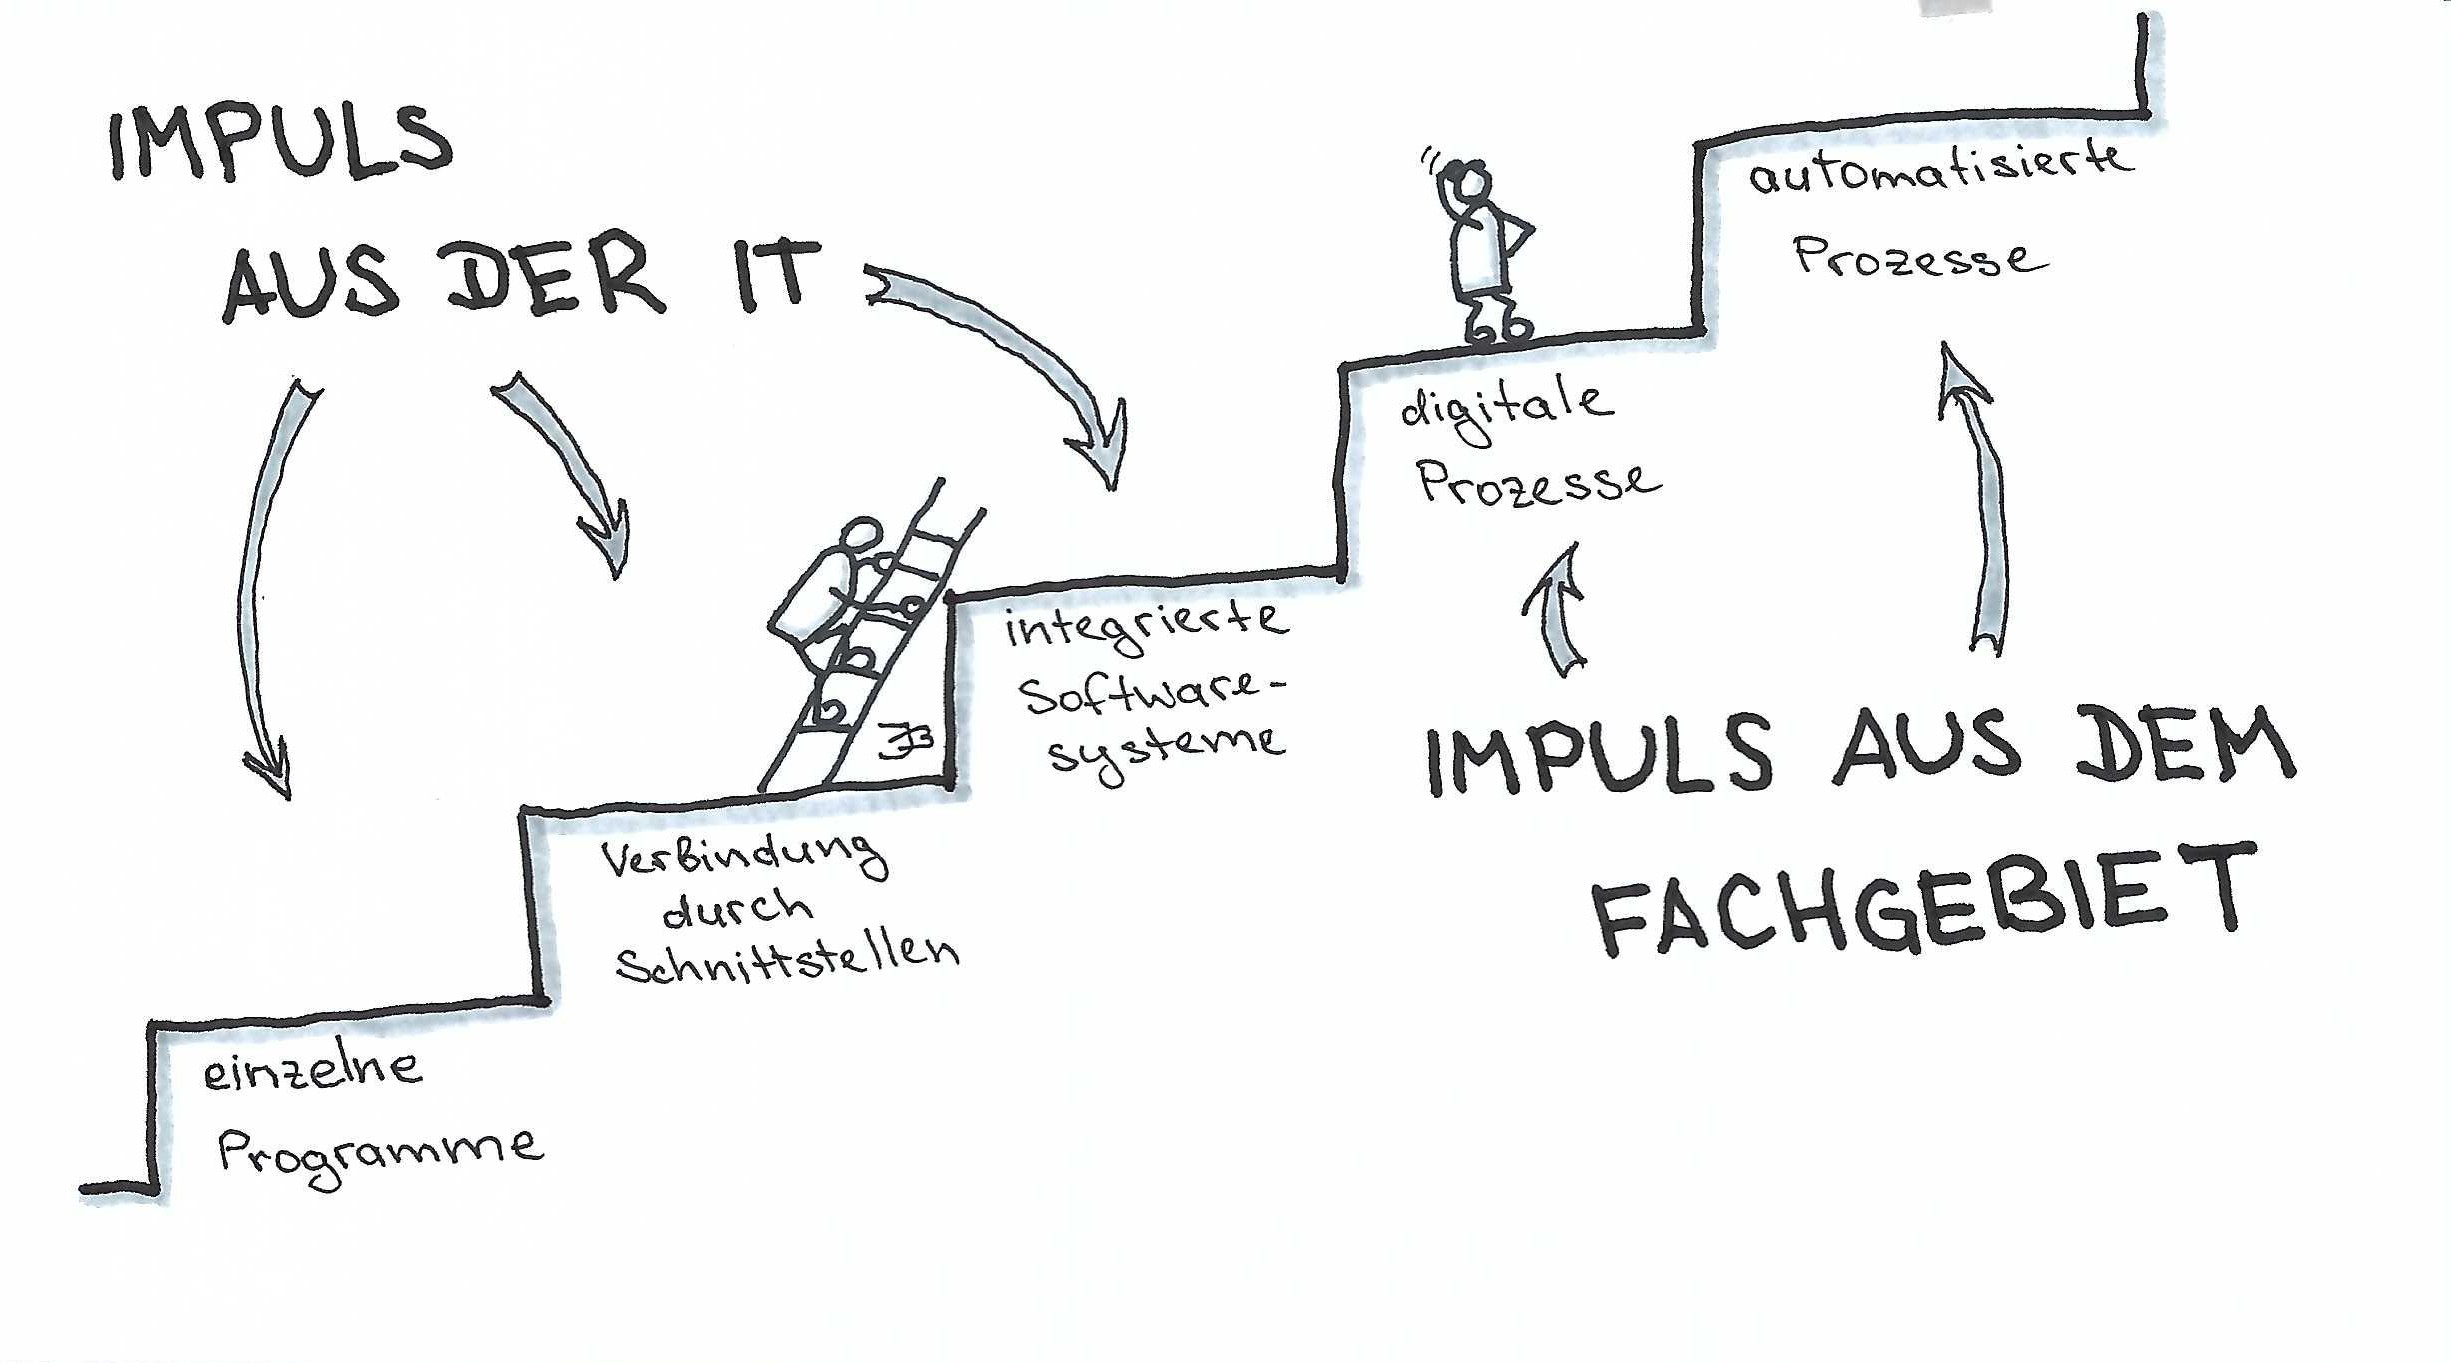 IMPULS
AUS DER IT
automatisierte
Prozesse
digitale
Prozesse
integrierte
Software-
systeme
IMPULS AUS DEM
FACHGEBIET
Verbindung
durch
Schnittstellen
einzelne
Programme